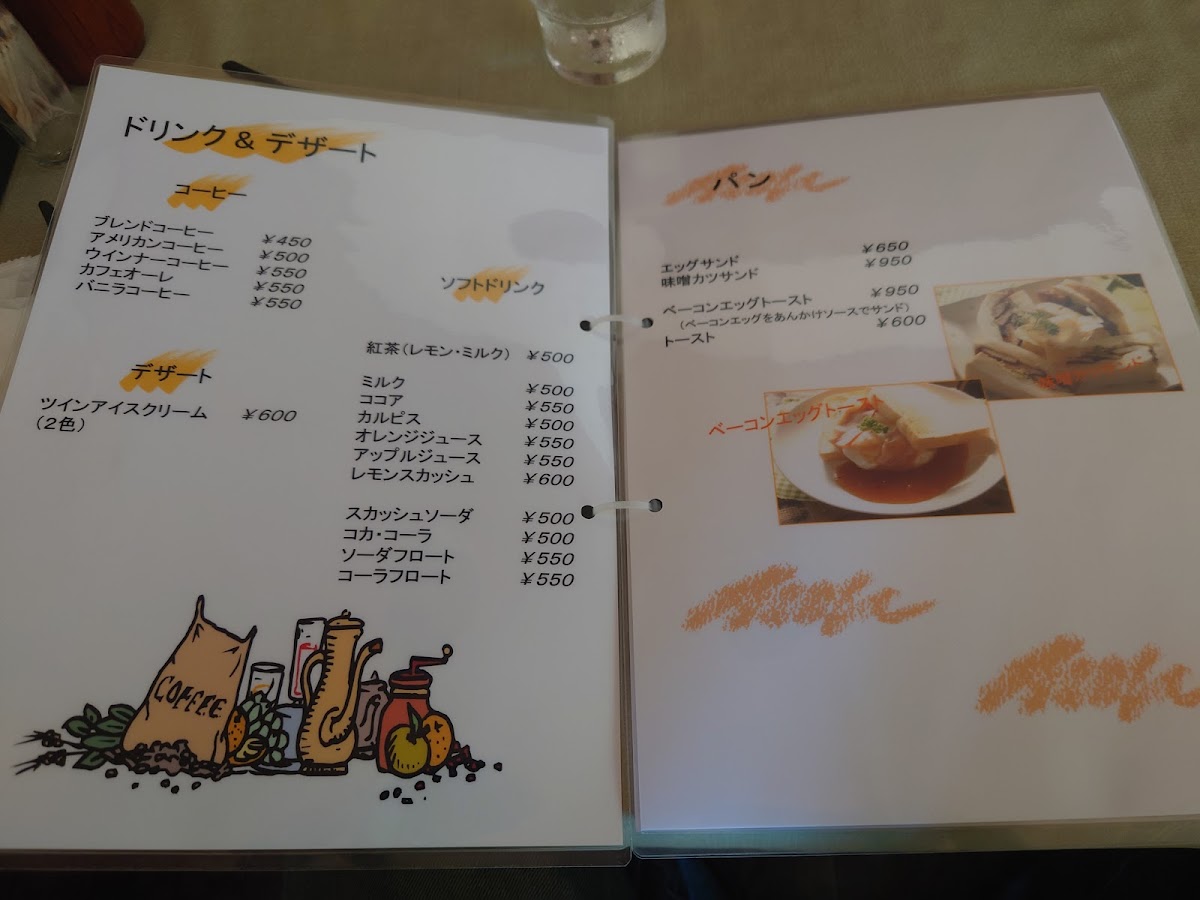 ドリンク & デザート
コーヒー
ブレンドコーヒー ￥450
アメリカンコーヒー ￥500
ウインナーコーヒー ￥550
カフェオーレ ￥550
バニラコーヒー ￥550
デザート
ツインアイスクリーム ￥600
（2色）
ソフトドリンク
紅茶（レモン・ミルク） ￥500
ミルク ￥500
ココア ￥550
カルピス ￥500
オレンジジュース ￥550
アップルジュース ￥550
レモンスカッシュ ￥600
スカッシュソーダ ￥500
コカ・コーラ ￥500
ソーダフロート ￥550
コーラフロート ￥550
COFFEE
パン
エッグサンド ￥650
味噌カツサンド ￥950
ベーコンエッグトースト ￥950
（ベーコンエッグをあんかけソースでサンド）
トースト ￥600
ベーコンエッグトースト